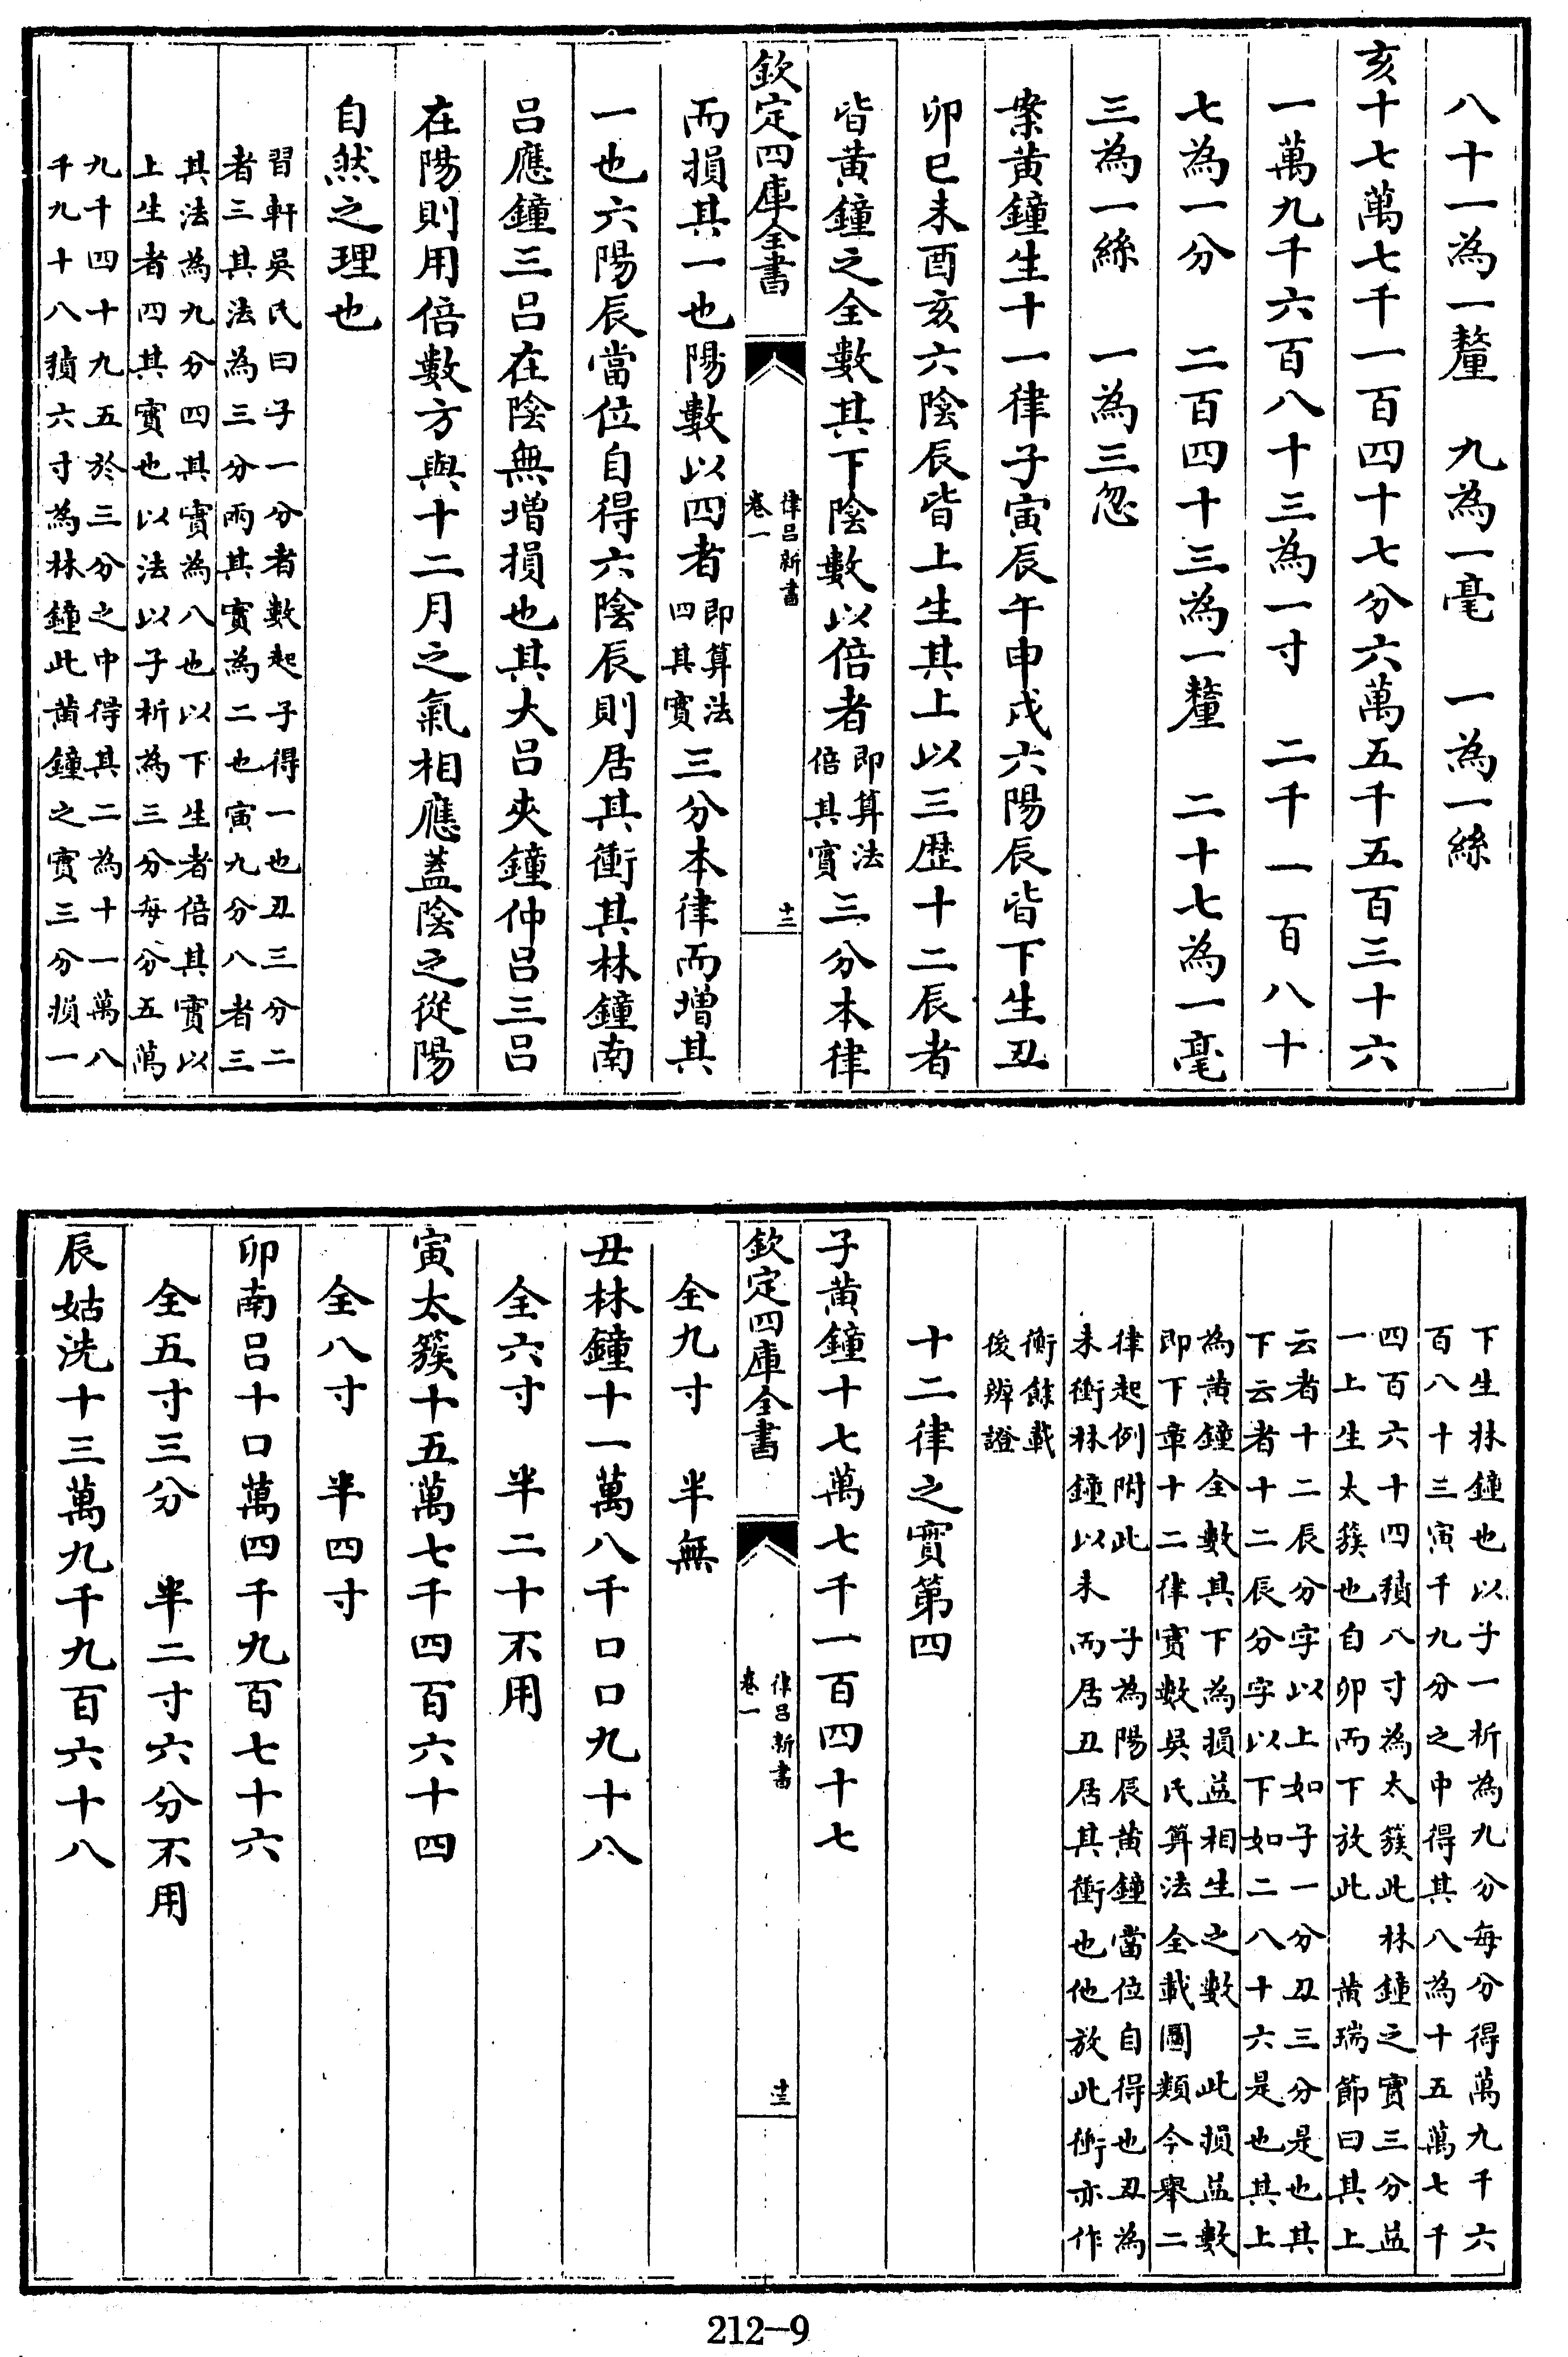 八十一為一釐　九為一毫　一為一絲
亥十七萬七千一百四十七分六萬五千五百三十六
一萬九千六百八十三為一寸　二千一百八十
七為一分　二百四十三為一釐　二十七為一毫
三為一絲　一為三忽
案黃鐘生十一律子寅辰午申戌六陽辰皆下生丑
卯巳未酉亥六陰辰皆上生其上以三歴十二辰者
皆黃鐘之全數其下陰數以倍者即算法倍其實三分本律
欽定四庫全書
律呂新書
卷一
十二
而損其一也陽數以四者即算法四其實三分本律而增其
一也六陽辰當位自得六陰辰則居其衝其林鐘南
呂應鐘三呂在陰無増損也其大呂夾鐘仲呂三呂
在陽則用倍數方與十二月之氣相應蓋陰之從陽
自然之理也
習軒吳氏曰子一分者數起子得一也丑三分二
者三其法為三分兩其實為二也寅九分八者三
其法為九分四其實為八也以下生者倍其實以
上生者四其實也以法以子析為三分每分五萬
九千四十九五於三分之中得其二為十一萬八
千九十八積六寸為林鐘此黃鐘之實三分損一
下生林鐘也以子一析為九分每分得萬九千六
百八十三寅千九分之中得其八為十五萬七千
四百六十四積八寸為太簇此林鐘之實三分益
一上生太簇也自卯而下放此　黃瑞節曰其上
云者十二辰分字以上如子一分丑三分是也其
下云者十二辰分字以下如二八十六是也其上
為黃鐘全數其下為損益相生之數　此損益數
即下章十二律實數吳氏筭法全載圖類今舉二
律起例附此　子為陽辰黃鐘當位自得也丑為
未衝林鐘以未而居丑居其衝也他放此衝亦作
衝餘載
後辨證
十二律之實第四
子黃鐘十七萬七千一百四十七
欽定四庫全書
律呂新書
卷一
十三
全九寸　半無
丑林鐘十一萬八千口口九十八
全六寸　半二十不用
寅太簇十五萬七千四百六十四
全八寸　半四寸
卯南呂十口萬四千九百七十六
全五寸三分　半二寸六分不用
辰姑洗十三萬九千九百六十八
212-9